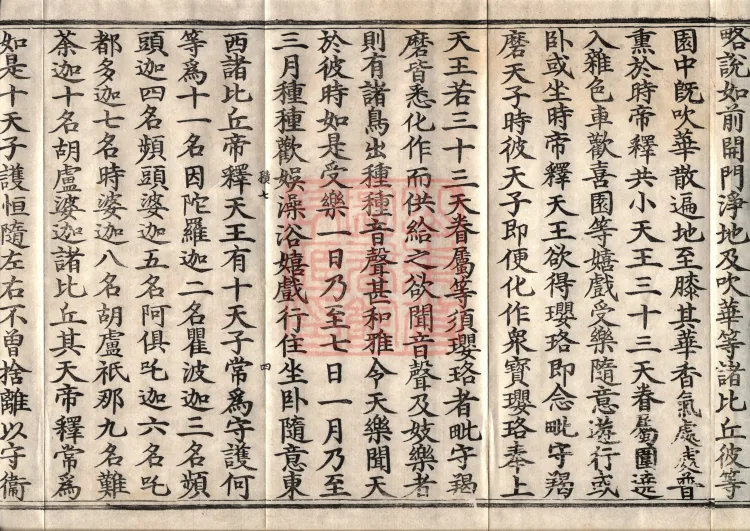 略說如前開門淨地及吹華等諸比丘彼等
園中旣吹華散遍地至膝其華香氣處處普
熏於時帝釋共小天王三十三天眷屬圍遶
入雜色車歡喜園等嬉戲受樂隨意遊行或
卧或坐時帝釋天王欲得瓔珞即念毗守羯
磨天子時彼天子即便化作衆寶瓔珞奉上
天王若三十三天眷屬等須瓔珞者毗守羯
磨皆悉化作而供給之欲聞音聲及妓樂者
則有諸鳥出種種音聲甚和雅令天樂聞天
於彼時如是受樂一日乃至七日一月乃至
三月種種歡娛澡浴嬉戲行住坐卧隨意東
四
西諸比丘帝釋天王有十天子常爲守護何
等爲十一名因陀羅迦二名瞿波迦三名頻
頭迦四名頻頭婆迦五名阿俱吒迦六名吒
都多迦七名時婆迦八名胡盧祇那九名難
茶迦十名胡盧婆迦諸比丘其天帝釋常爲
如是十天子護恒隨左右不曾捨離以守衞